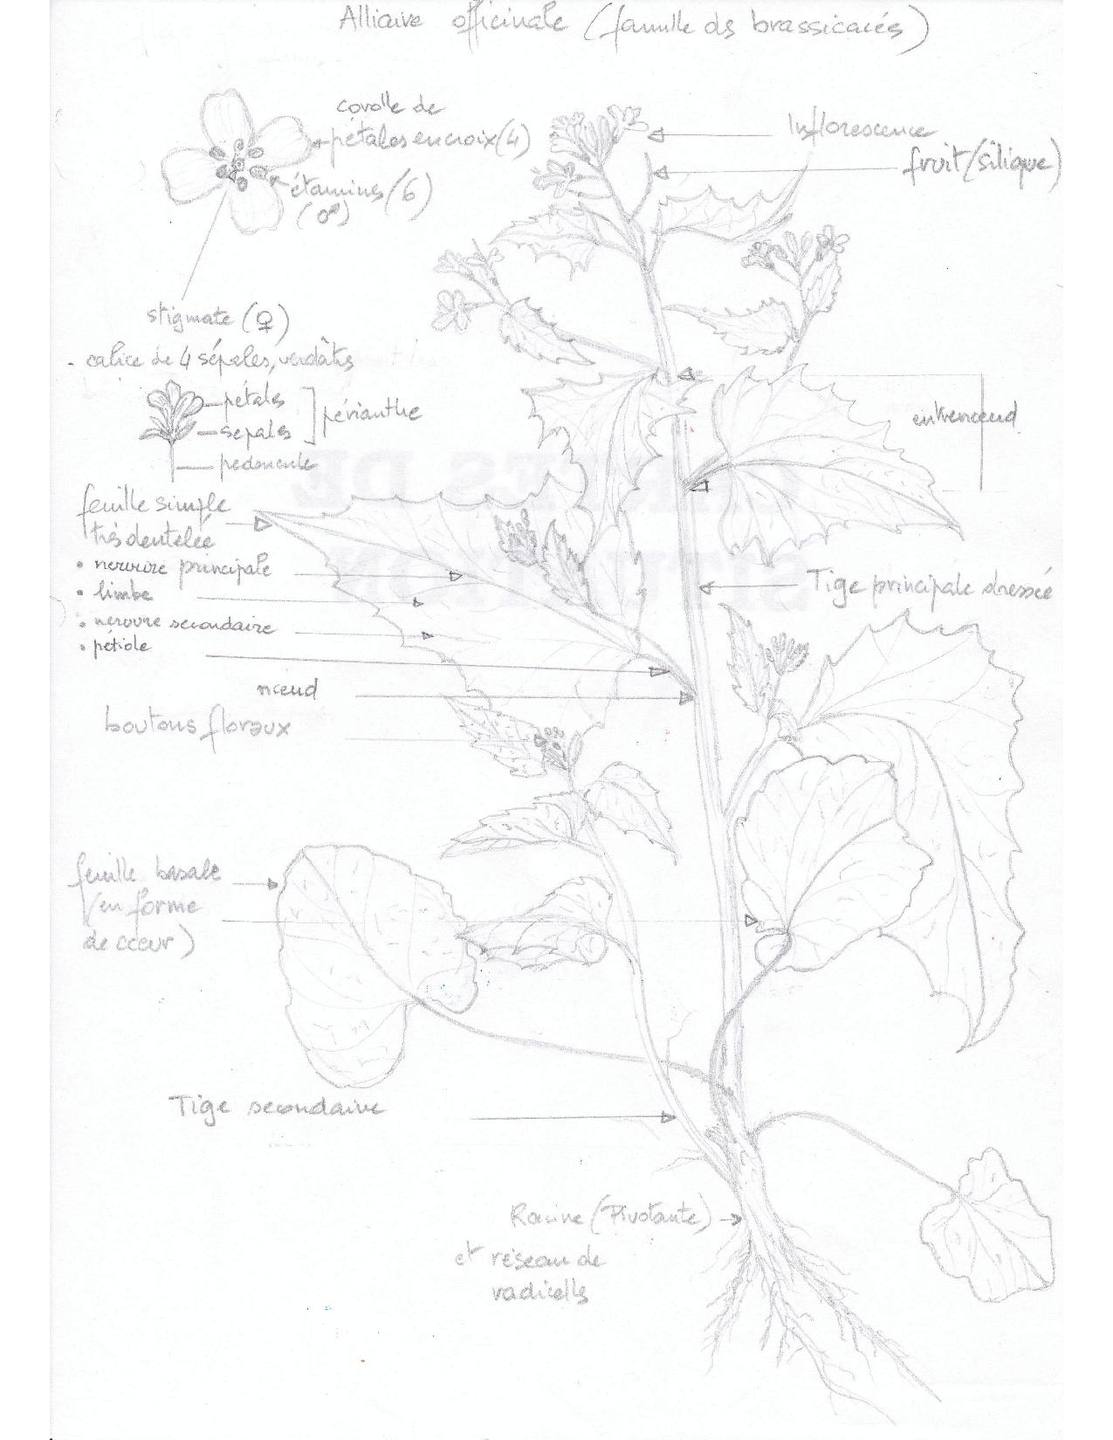 Alliaire officinale (famille des brassicacés)
corolle de
pétales en croix (4)
étamines (6)
(♂)
Inflorescence
fruit (silique)
stigmate (♀)
- calice de 4 sépales, verdâtres
pétales
sepales
périanthe
pedoncule
entrenoeud
feuille simple
très dentelée
• nervure principale
• limbe
• nervure secondaire
• pétiole
Tige principale dressée
nœud
boutons floraux
feuille basale
(en forme
de cœur)
Tige secondaire
Racine (Pivotante)
et réseau de
radicelles